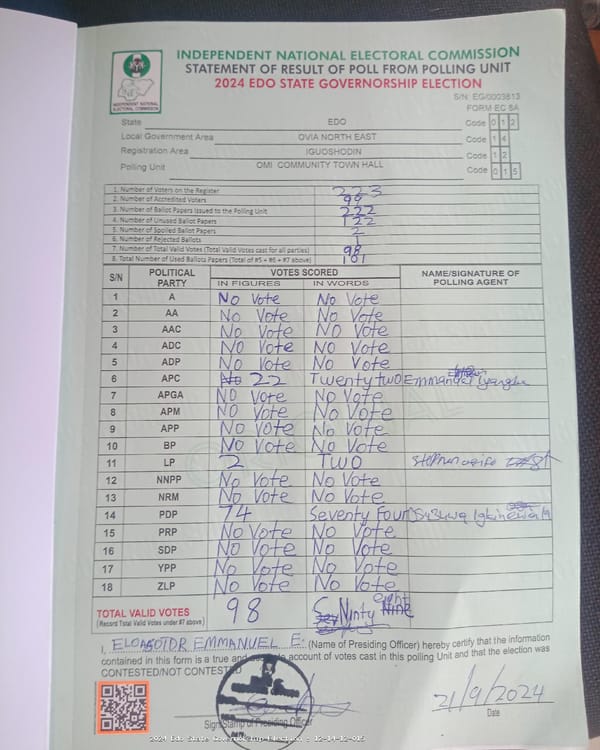 INDEPENDENT NATIONAL ELECTORAL COMMISSION
INDEPENDENT NATIONAL ELECTORAL COMMISSION
STATEMENT OF RESULT OF POLL FROM POLLING UNIT
2024 EDO STATE GOVERNORSHIP ELECTION
S/N: EG/0003813
FORM EC 8A
State EDO Code 0 1 2
Local Government Area OVIA NORTH EAST Code 1 4
Registration Area IGUOSHODIN Code 1 2
Polling Unit OMI COMMUNITY TOWN HALL Code 0 1 5
1. Number of Voters on the Register 223
2. Number of Accredited Voters 99
3. Number of Ballot Papers Issued to the Polling Unit 222
4. Number of Unused Ballot Papers 122
5. Number of Spoiled Ballot Papers 2
6. Number of Rejected Ballots 1
7. Number of Total Valid Votes (Total Valid Votes cast for all parties) 98
8. Total Number of Used Ballots Papers (Total of #5 + #6 + #7 above) 101
S/N POLITICAL PARTY VOTES SCORED NAME/SIGNATURE OF POLLING AGENT
IN FIGURES IN WORDS
1 A No Vote No Vote
2 AA No Vote No Vote
3 AAC No Vote No Vote
4 ADC No Vote No Vote
5 ADP No Vote No Vote
6 APC 22 Twenty two Emmanuel
7 APGA No Vote No Vote
8 APM No Vote No Vote
9 APP No Vote No Vote
10 BP No Vote No Vote
11 LP 2 Two
12 NNPP No Vote No Vote
13 NRM No Vote No Vote
14 PDP 74 Seventy Four
15 PRP No Vote No Vote
16 SDP No Vote No Vote
17 YPP No Vote No Vote
18 ZLP No Vote No Vote
TOTAL VALID VOTES 98 Ninty eight
(Record Total Valid Votes under #7 above)
I, EMMANUEL E. (Name of Presiding Officer) hereby certify that the information
contained in this form is a true and account of votes cast in this polling Unit and that the election was
CONTESTED/NOT CONTESTED
21/9/2024
Sign/Stamp of Presiding Officer Date
2024 Edo State Governorship Election : 12-14-12-015